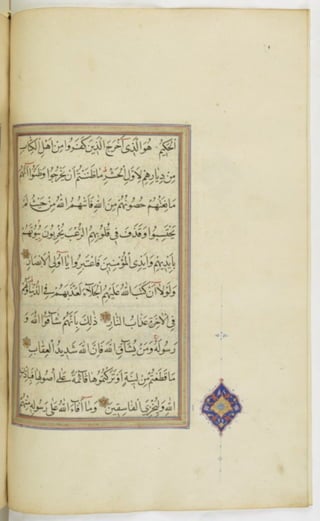 الْحَكِيمُ هُوَ الَّذِي أَخْرَجَ الَّذِينَ كَفَرُوا مِنْ أَهْلِ الْكِتَابِ
مِنْ دِيَارِهِمْ لِأَوَّلِ الْحَشْرِ مَا ظَنَنْتُمْ أَنْ يَخْرُجُوا وَظَنُّوا أَنَّهُمْ
مَانِعَتُهُمْ حُصُونُهُمْ مِنَ اللَّهِ فَأَتَيهُمُ اللَّهُ مِنْ حَيْثُ لَمْ
يَحْتَسِبُوا وَقَذَفَ فِي قُلُوبِهِمُ الرُّعْبَ يُخْرِبُونَ بُيُوتَهُمْ
بِأَيْدِيهِمْ وَأَيْدِي الْمُؤْمِنِينَ فَاعْتَبِرُوا يَا أُولِي الْأَبْصَارِ
وَلَوْلَا أَنْ كَتَبَ اللَّهُ عَلَيْهِمُ الْجَلَاءَ لَعَذَّبَهُمْ فِي الدُّنْيَا وَلَهُمْ
فِي الْآخِرَةِ عَذَابُ النَّارِ ذَلِكَ بِأَنَّهُمْ شَاقُّوا اللَّهَ وَ
رَسُولَهُ وَمَنْ يُشَاقِّ اللَّهَ فَإِنَّ اللَّهَ شَدِيدُ الْعِقَابِ
مَا قَطَعْتُمْ مِنْ لِينَةٍ أَوْ تَرَكْتُمُوهَا قَائِمَةً عَلَى أُصُولِهَا فَبِإِذْنِ
اللَّهِ وَلِيُخْزِيَ الْفَاسِقِينَ وَمَا أَفَاءَ اللَّهُ عَلَى رَسُولِهِ مِنْهُمْ